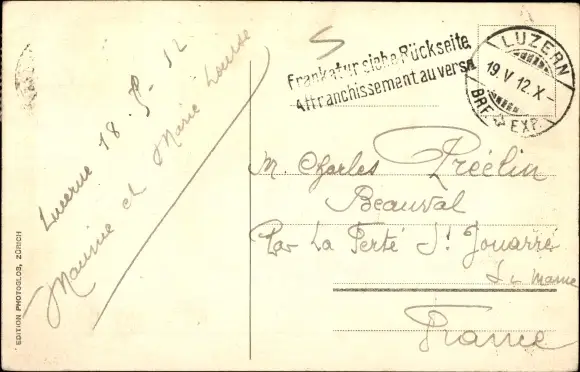 Lucerne 18-5-12
Maurice et Marie Louise
EDITION PHOTOGLOB, ZÜRICH
Frankatur siehe Rückseite
Affranchissement au verso
LUZERN
19. V 12. X -
BRF. EXP.
M. Charles Préelin
Beauval
Par La Ferté St Jouarre
S. Marne
France